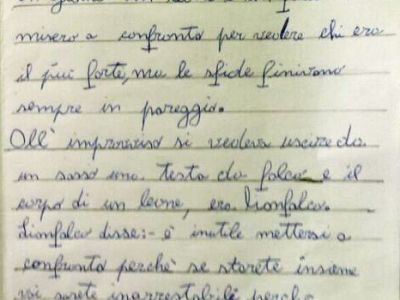 Un giorno un
misero a confronto per vedere chi era
il piú forte, ma le sfide finivano
sempre in pareggio.
All' improvviso si vedeva uscire da
un sasso una testa da falco e il
corpo di un leone, era Lionfalco.
Lionfalco disse:- è inutile mettersi a
confronto perchè se starete insieme
voi sarete inarrestabili perchè